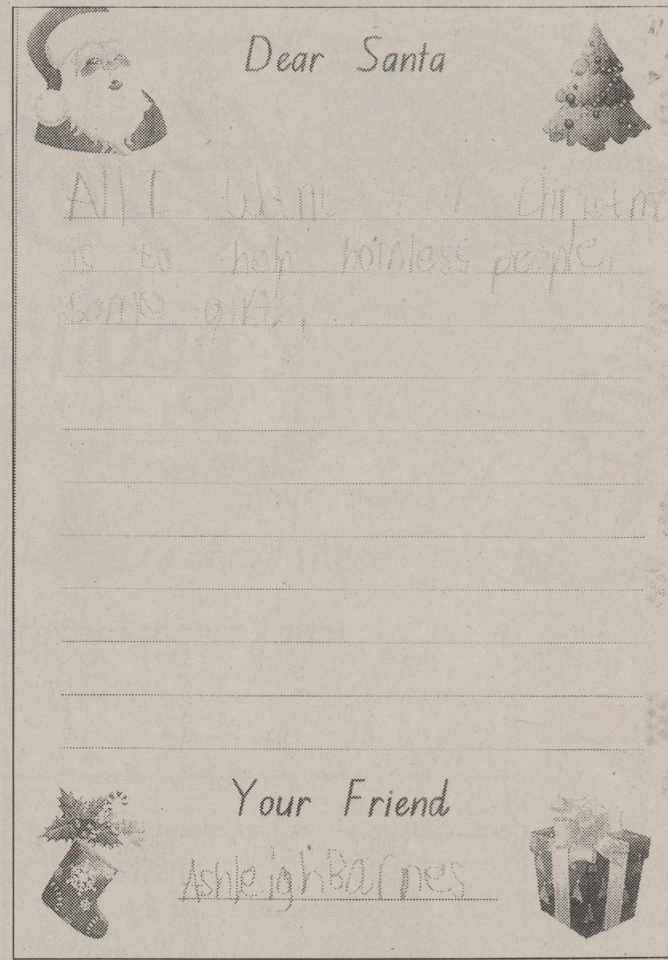 Dear Santa
All I want for christm
is to help homless people
some gifts.
Your Friend
Ashleigh Barnes